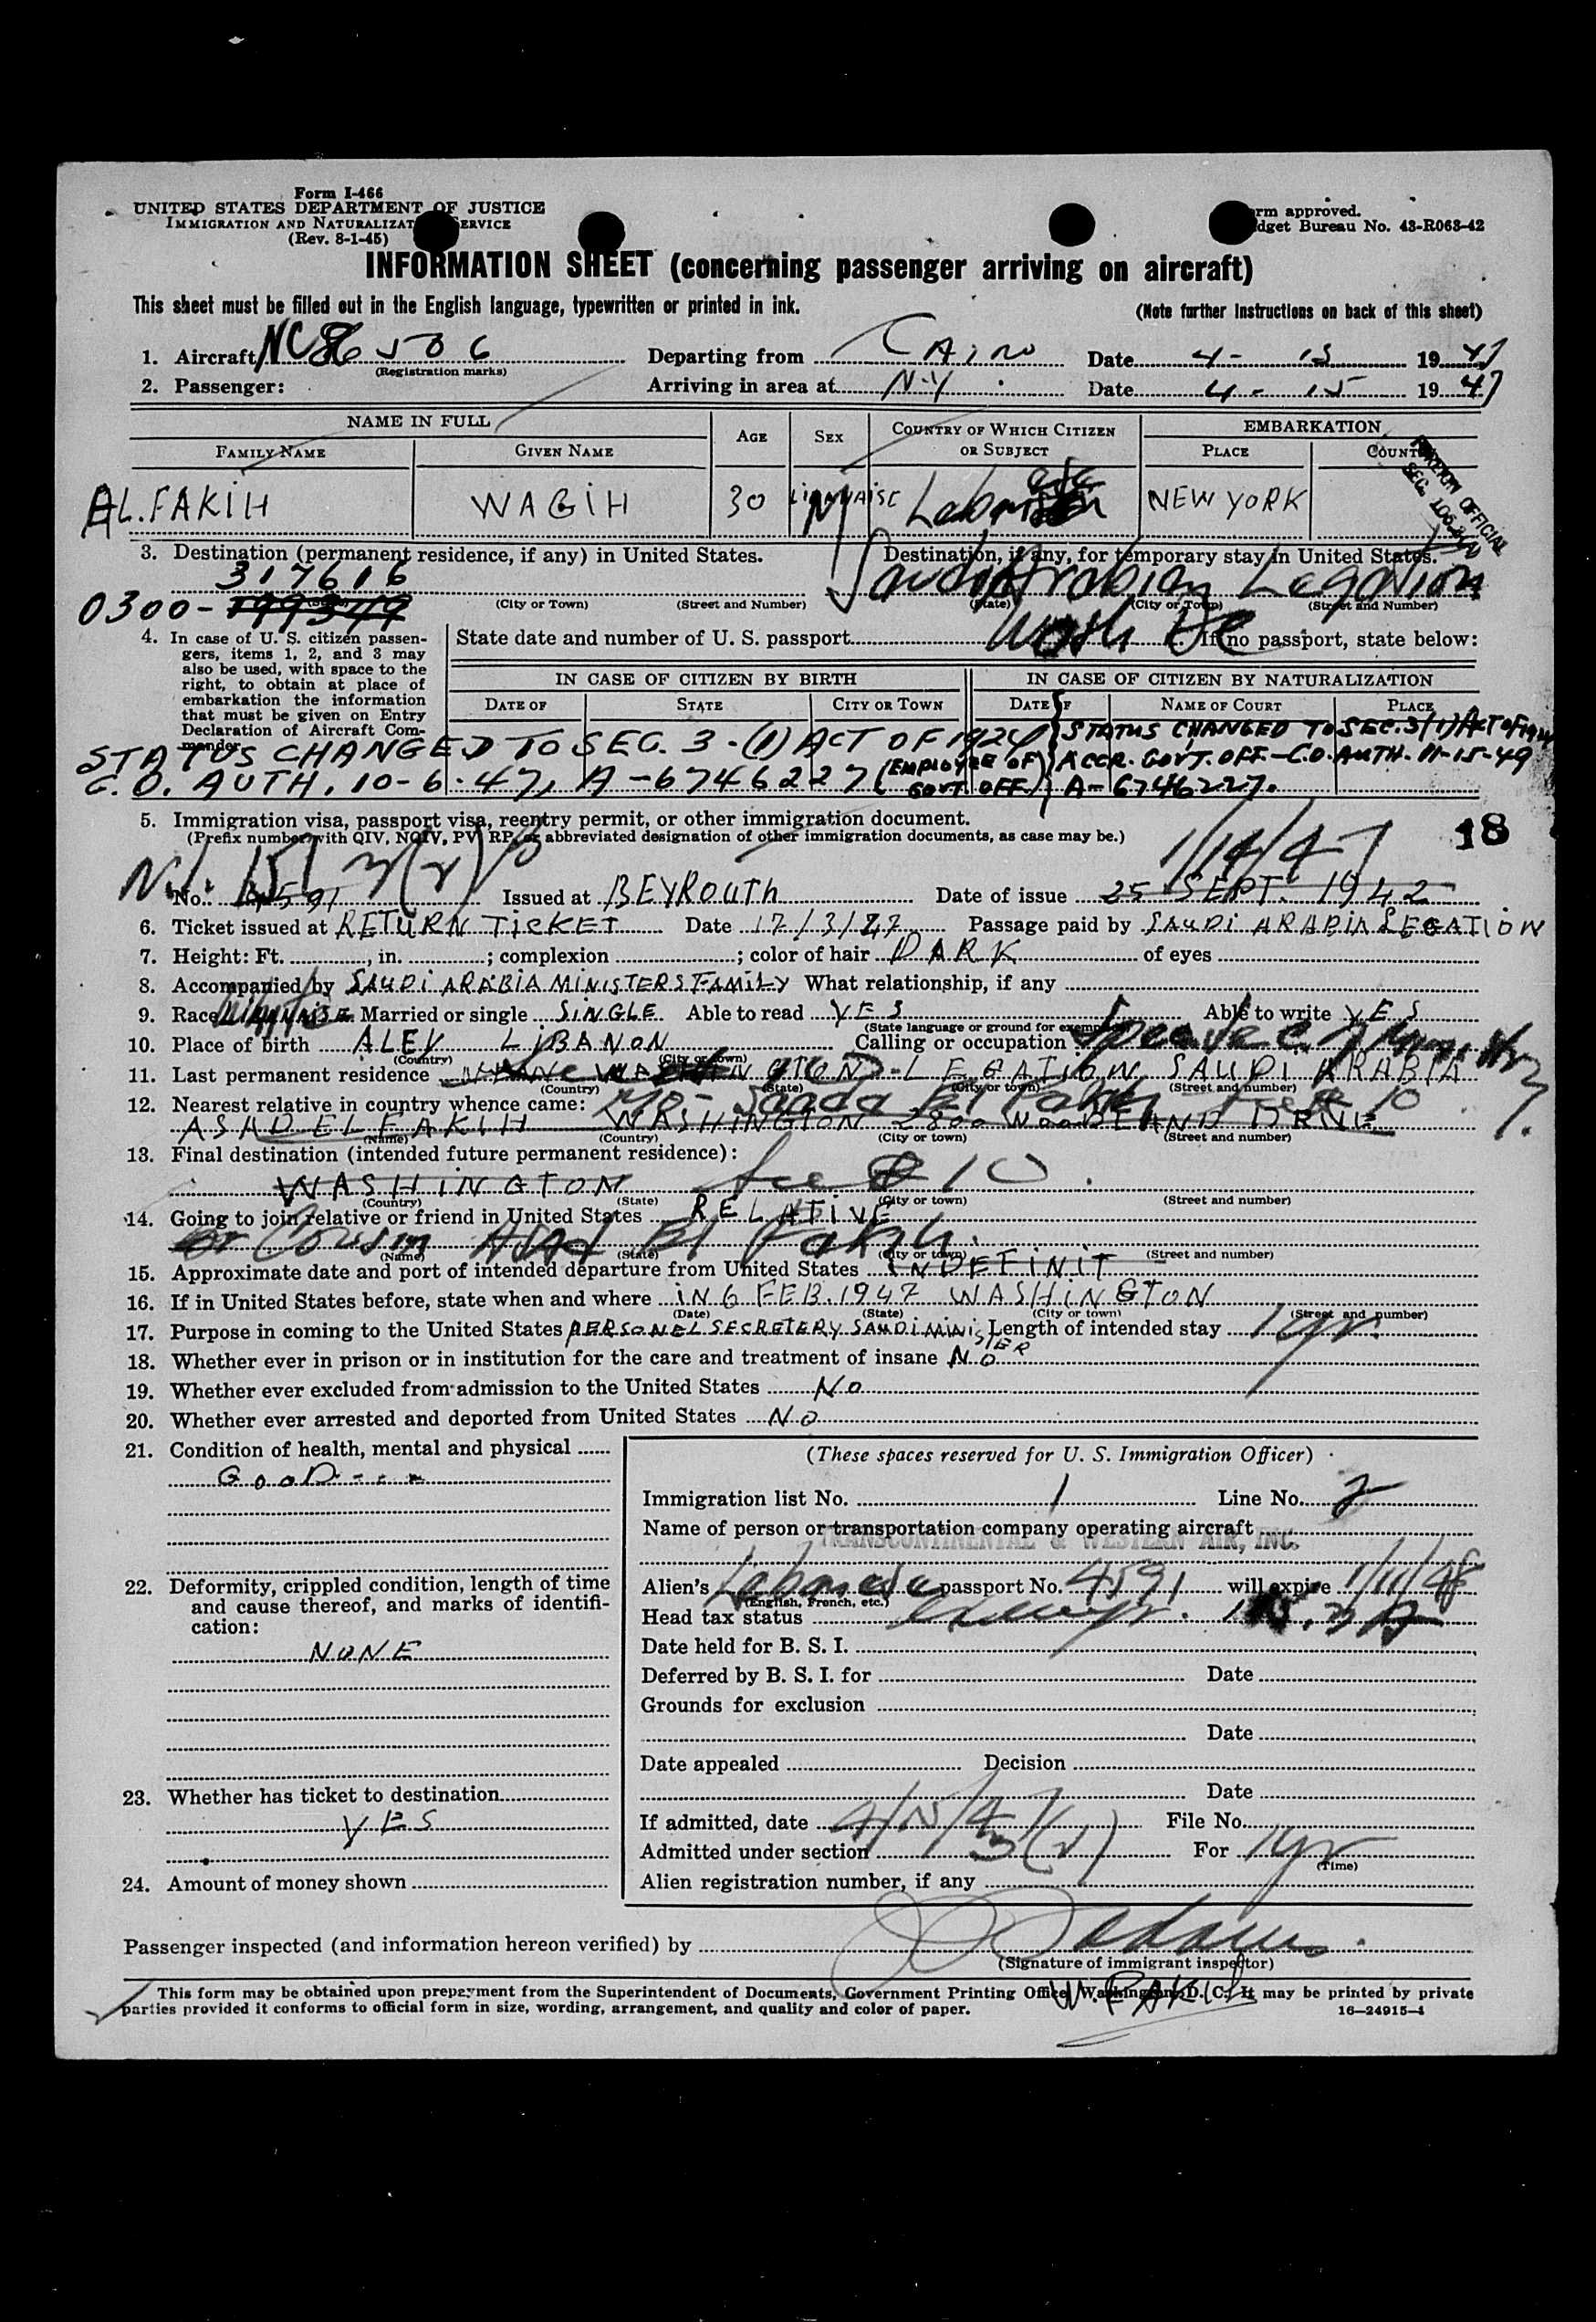 Form I-466
UNITED STATES DEPARTMENT OF JUSTICE
IMMIGRATION AND NATURALIZAT SERVICE
(Rev. 8-1-45)
rm approved.
dget Bureau No. 43-R063-42
INFORMATION SHEET (concerning passenger arriving on aircraft)
This sheet must be filled out in the English language, typewritten or printed in ink.
(Note further instructions on back of this sheet)
1. Aircraft NC 86506 Departing from CAiro Date 4- 13 1947
(Registration marks)
2. Passenger: Arriving in area at N.Y. Date 4- 15 1947
NAME IN FULL AGE SEX COUNTRY OF WHICH CITIZEN OR SUBJECT EMBARKATION
FAMILY NAME GIVEN NAME PLACE COUNT
AL.FAKIH WAGIH 30 M NEW YORK
FOREIGN OFFICIAL
3. Destination (permanent residence, if any) in United States. Destination, if any, for temporary stay in United States.
317616 Saudi Arabian Legation
(City or Town) (Street and Number) (State) (City or Town) (Street and Number)
0300-
4. In case of U. S. citizen passengers, items 1, 2, and 3 may also be used, with space to the right, to obtain at place of embarkation the information that must be given on Entry Declaration of Aircraft Commander.
State date and number of U. S. passport Wash DC If no passport, state below:
IN CASE OF CITIZEN BY BIRTH IN CASE OF CITIZEN BY NATURALIZATION
DATE OF STATE CITY OR TOWN DATE OF NAME OF COURT PLACE
STATUS CHANGED TO SEC. 3-(1) ACT OF 1924
C.O. AUTH. 10-6-47, A-6746227 (EMPLOYEE OF GOVT. OFF.)
STATUS CHANGED TO SEC. 3(1) ACT OF 1924
ACCR. GOVT. OFF.-C.O. AUTH. 11-15-49
A-6746227.
5. Immigration visa, passport visa, reentry permit, or other immigration document.
(Prefix number with QIV, NQIV, PV, RP, or abbreviated designation of other immigration documents, as case may be.)
18
1/14/47
No. Issued at BEYROUTH Date of issue 25 SEPT. 1942
6. Ticket issued at RETURN TICKET Date 17/3/47 Passage paid by SAUDI ARABIA LEGATION
7. Height: Ft. , in. ; complexion ; color of hair DARK of eyes
8. Accompanied by SAUDI ARABIA MINISTERS FAMILY What relationship, if any
9. Race Married or single SINGLE Able to read YES Able to write YES
(State language or ground for exemption)
10. Place of birth ALEY LIBANON Calling or occupation
(Country) (City or town)
11. Last permanent residence LEGATION SAUDI ARABIA
(Country) (State) (City or town) (Street and number)
12. Nearest relative in country whence came:
ASAD EL FAKIH WASHINGTON 2800 WOODLAND DRIVE
(Name) (Country) (City or town) (Street and number)
13. Final destination (intended future permanent residence):
WASHINGTON see # 10.
(Country) (State) (City or town) (Street and number)
14. Going to join relative or friend in United States RELATIVE
Cousin Asad El Fakih.
(Name) (State) (City or town) (Street and number)
15. Approximate date and port of intended departure from United States INDEFINIT
16. If in United States before, state when and where IN 6 FEB. 1947 WASHINGTON
(Date) (State) (City or town) (Street and number)
17. Purpose in coming to the United States PERSONEL SECRETERY SAUDI MINISTER Length of intended stay 1 yr.
18. Whether ever in prison or in institution for the care and treatment of insane No
19. Whether ever excluded from admission to the United States No
20. Whether ever arrested and deported from United States No
21. Condition of health, mental and physical
GooD - - -
22. Deformity, crippled condition, length of time and cause thereof, and marks of identification:
NONE
23. Whether has ticket to destination
YES
24. Amount of money shown
(These spaces reserved for U. S. Immigration Officer)
Immigration list No. 1 Line No. 2
Name of person or transportation company operating aircraft
TRANSCONTINENTAL & WESTERN AIR, INC.
Alien's Lebanese passport No. 4591 will expire 1/11/48
(English, French, etc.)
Head tax status
Date held for B. S. I.
Deferred by B. S. I. for Date
Grounds for exclusion
Date
Date appealed Decision
Date
If admitted, date 4/15/47 File No.
Admitted under section 3(2) For 1 yr
(Time)
Alien registration number, if any
Passenger inspected (and information hereon verified) by
(Signature of immigrant inspector)
W. FAKIH
This form may be obtained upon prepayment from the Superintendent of Documents, Government Printing Office, Washington, D. C. It may be printed by private
parties provided it conforms to official form in size, wording, arrangement, and quality and color of paper.
16—24915-1